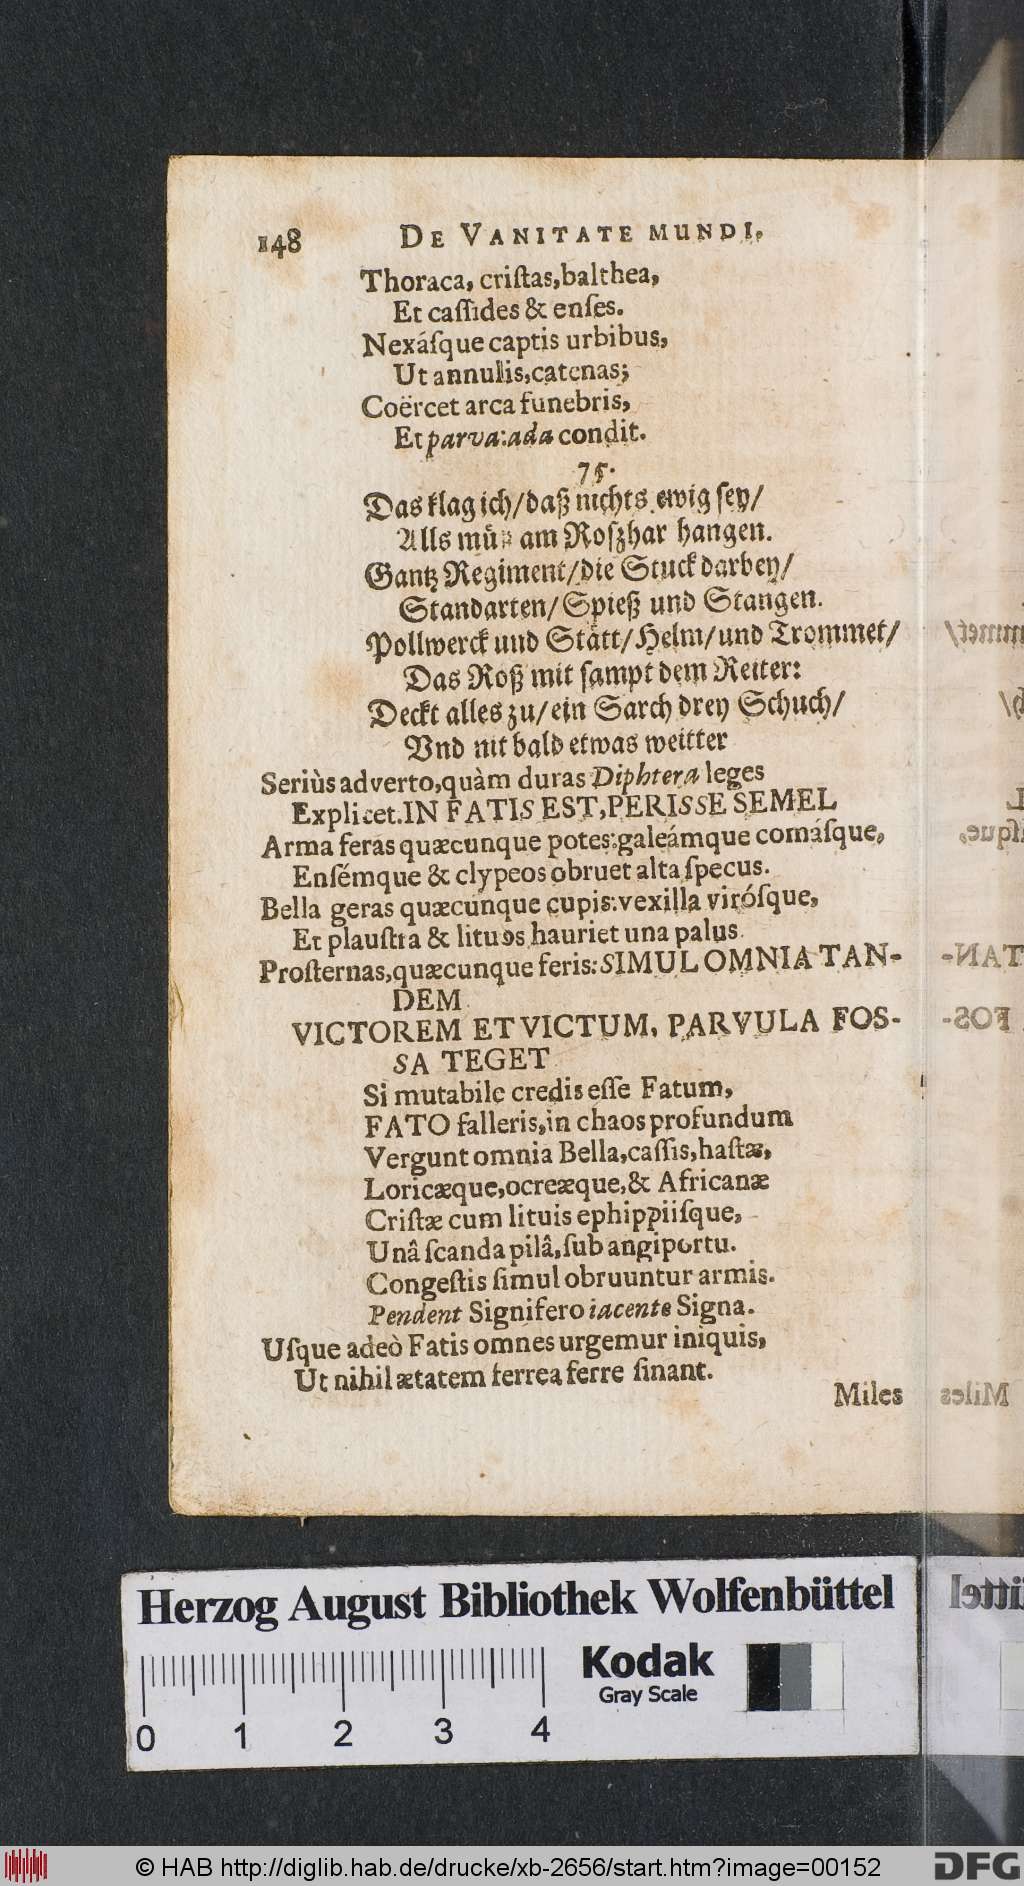 148 DE VANITATE MUNDI.
Thoraca, criſtas, balthea,
Et caſſides & enſes.
Nexáſque captis urbibus,
Ut annulis, catenas;
Coërcet arca funebris,
Et parva: ada condit.
75.
Das klag ich/ daß nichts ewig ſey/
Alls müß am Roſzhar hangen.
Gantz Regiment/ die Stuck darbey/
Standarten/ Spieß und Stangen.
Pollwerck und Stätt/ Helm/ und Trommet/
Das Roß mit ſampt dem Reiter:
Deckt alles zu/ ein Sarch drey Schuch/
Vnd nit bald etwas weitter
Seriùs adverto, quàm duras Diphtera leges
Explicet. IN FATIS EST, PERISSE SEMEL
Arma feras quæcunque potes: galeámque comáſque,
Enſémque & clypeos obruet alta ſpecus.
Bella geras quæcunque cupis: vexilla viróſque,
Et plauſtra & lituos hauriet una palus.
Proſternas, quæcunque feris: SIMUL OMNIA TAN-
DEM
VICTOREM ET VICTUM, PARVULA FOS-
SA TEGET
Si mutabile credis eſſe Fatum,
FATO falleris, in chaos profundum
Vergunt omnia Bella, caſſis, haſtæ,
Loricæque, ocreæque, & Africanæ
Criſtæ cum lituis ephippiiſque,
Unâ ſcanda pilâ, ſub angiportu.
Congeſtis ſimul obruuntur armis.
Pendent Signifero iacente Signa.
Uſque adeò Fatis omnes urgemur iniquis,
Ut nihil ætatem ferrea ferre ſinant.
Miles
Herzog August Bibliothek Wolfenbüttel
Kodak
Gray Scale
0 1 2 3 4
© HAB http://diglib.hab.de/drucke/xb-2656/start.htm?image=00152
DFG